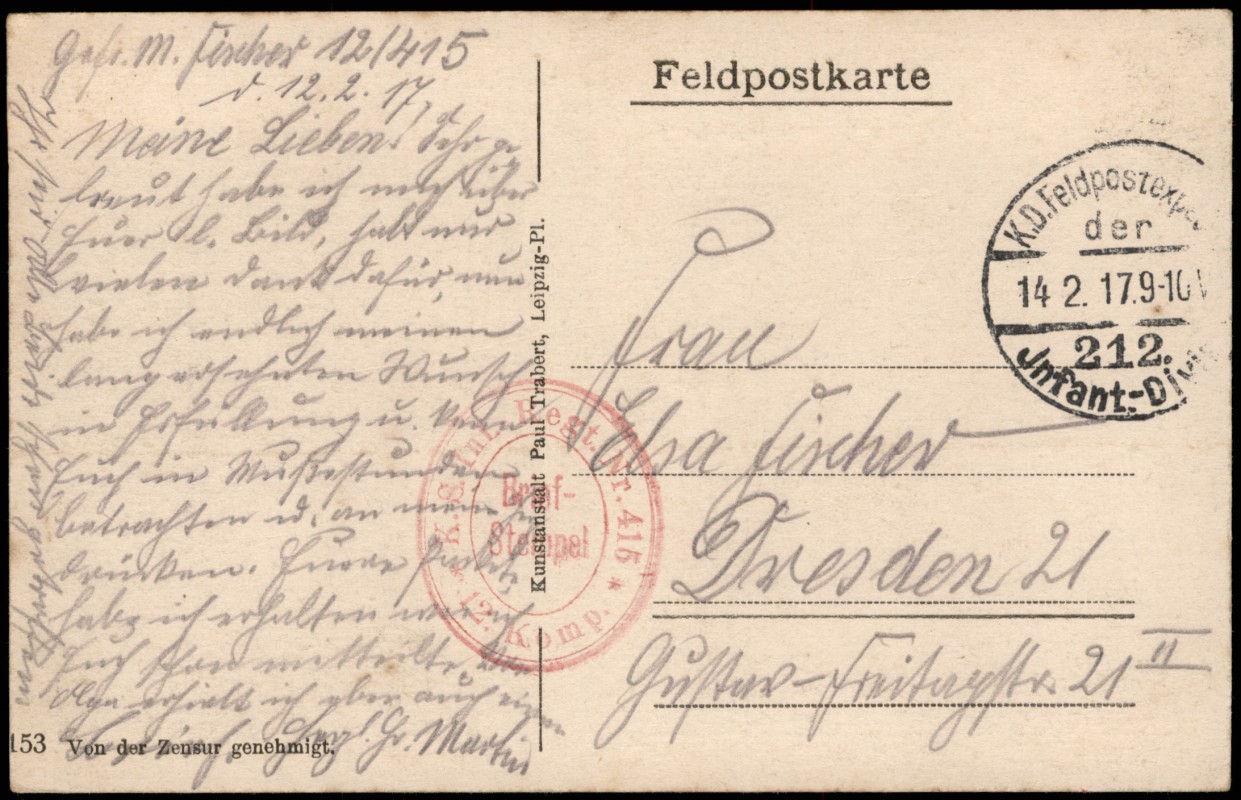 Gefr. M. Fischer 12/415
d. 12.2.17,
Meine Lieben! Sehr ge-
freut habe ich mich über
Euer l. Bild, habt nur
vielen Dank dafür, nun
habe ich endlich meinen
lang ersehnten Wunsch
in Erfüllung u. kann
Euch in Mußestunden
betrachten u. an mein
drücken. Eure Pakete,
habe ich erhalten wie ich
Euch schon mitteilte, von
Olga erhielt ich aber auch einen
Hrzl. Gr. Martin
153 Von der Zensur genehmigt.
Kunstanstalt Paul Trabert, Leipzig-Pl.
Feldpostkarte
K.D.Feldpostexped
der
14 2. 17.9-10 V
212.
Jnfant.-Divis
Frau
Elsa Fischer
Dresden 21
Gustav-Freitagstr. 21 II
K.S. Inf. Regt. Nr. 415
Brief-
Stempel
* 12. Komp. *